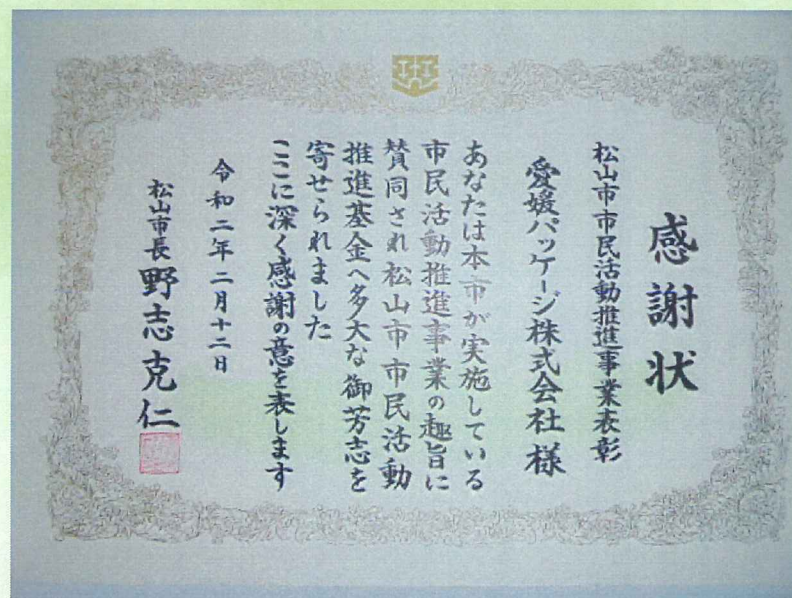 感謝状
松山市市民活動推進事業表彰
愛媛パッケージ株式会社様
あなたは本市が実施している
市民活動推進事業の趣旨に
賛同され松山市市民活動
推進基金へ多大な御芳志を
寄せられました
ここに深く感謝の意を表します
令和二年二月十二日
松山市長 野志克仁